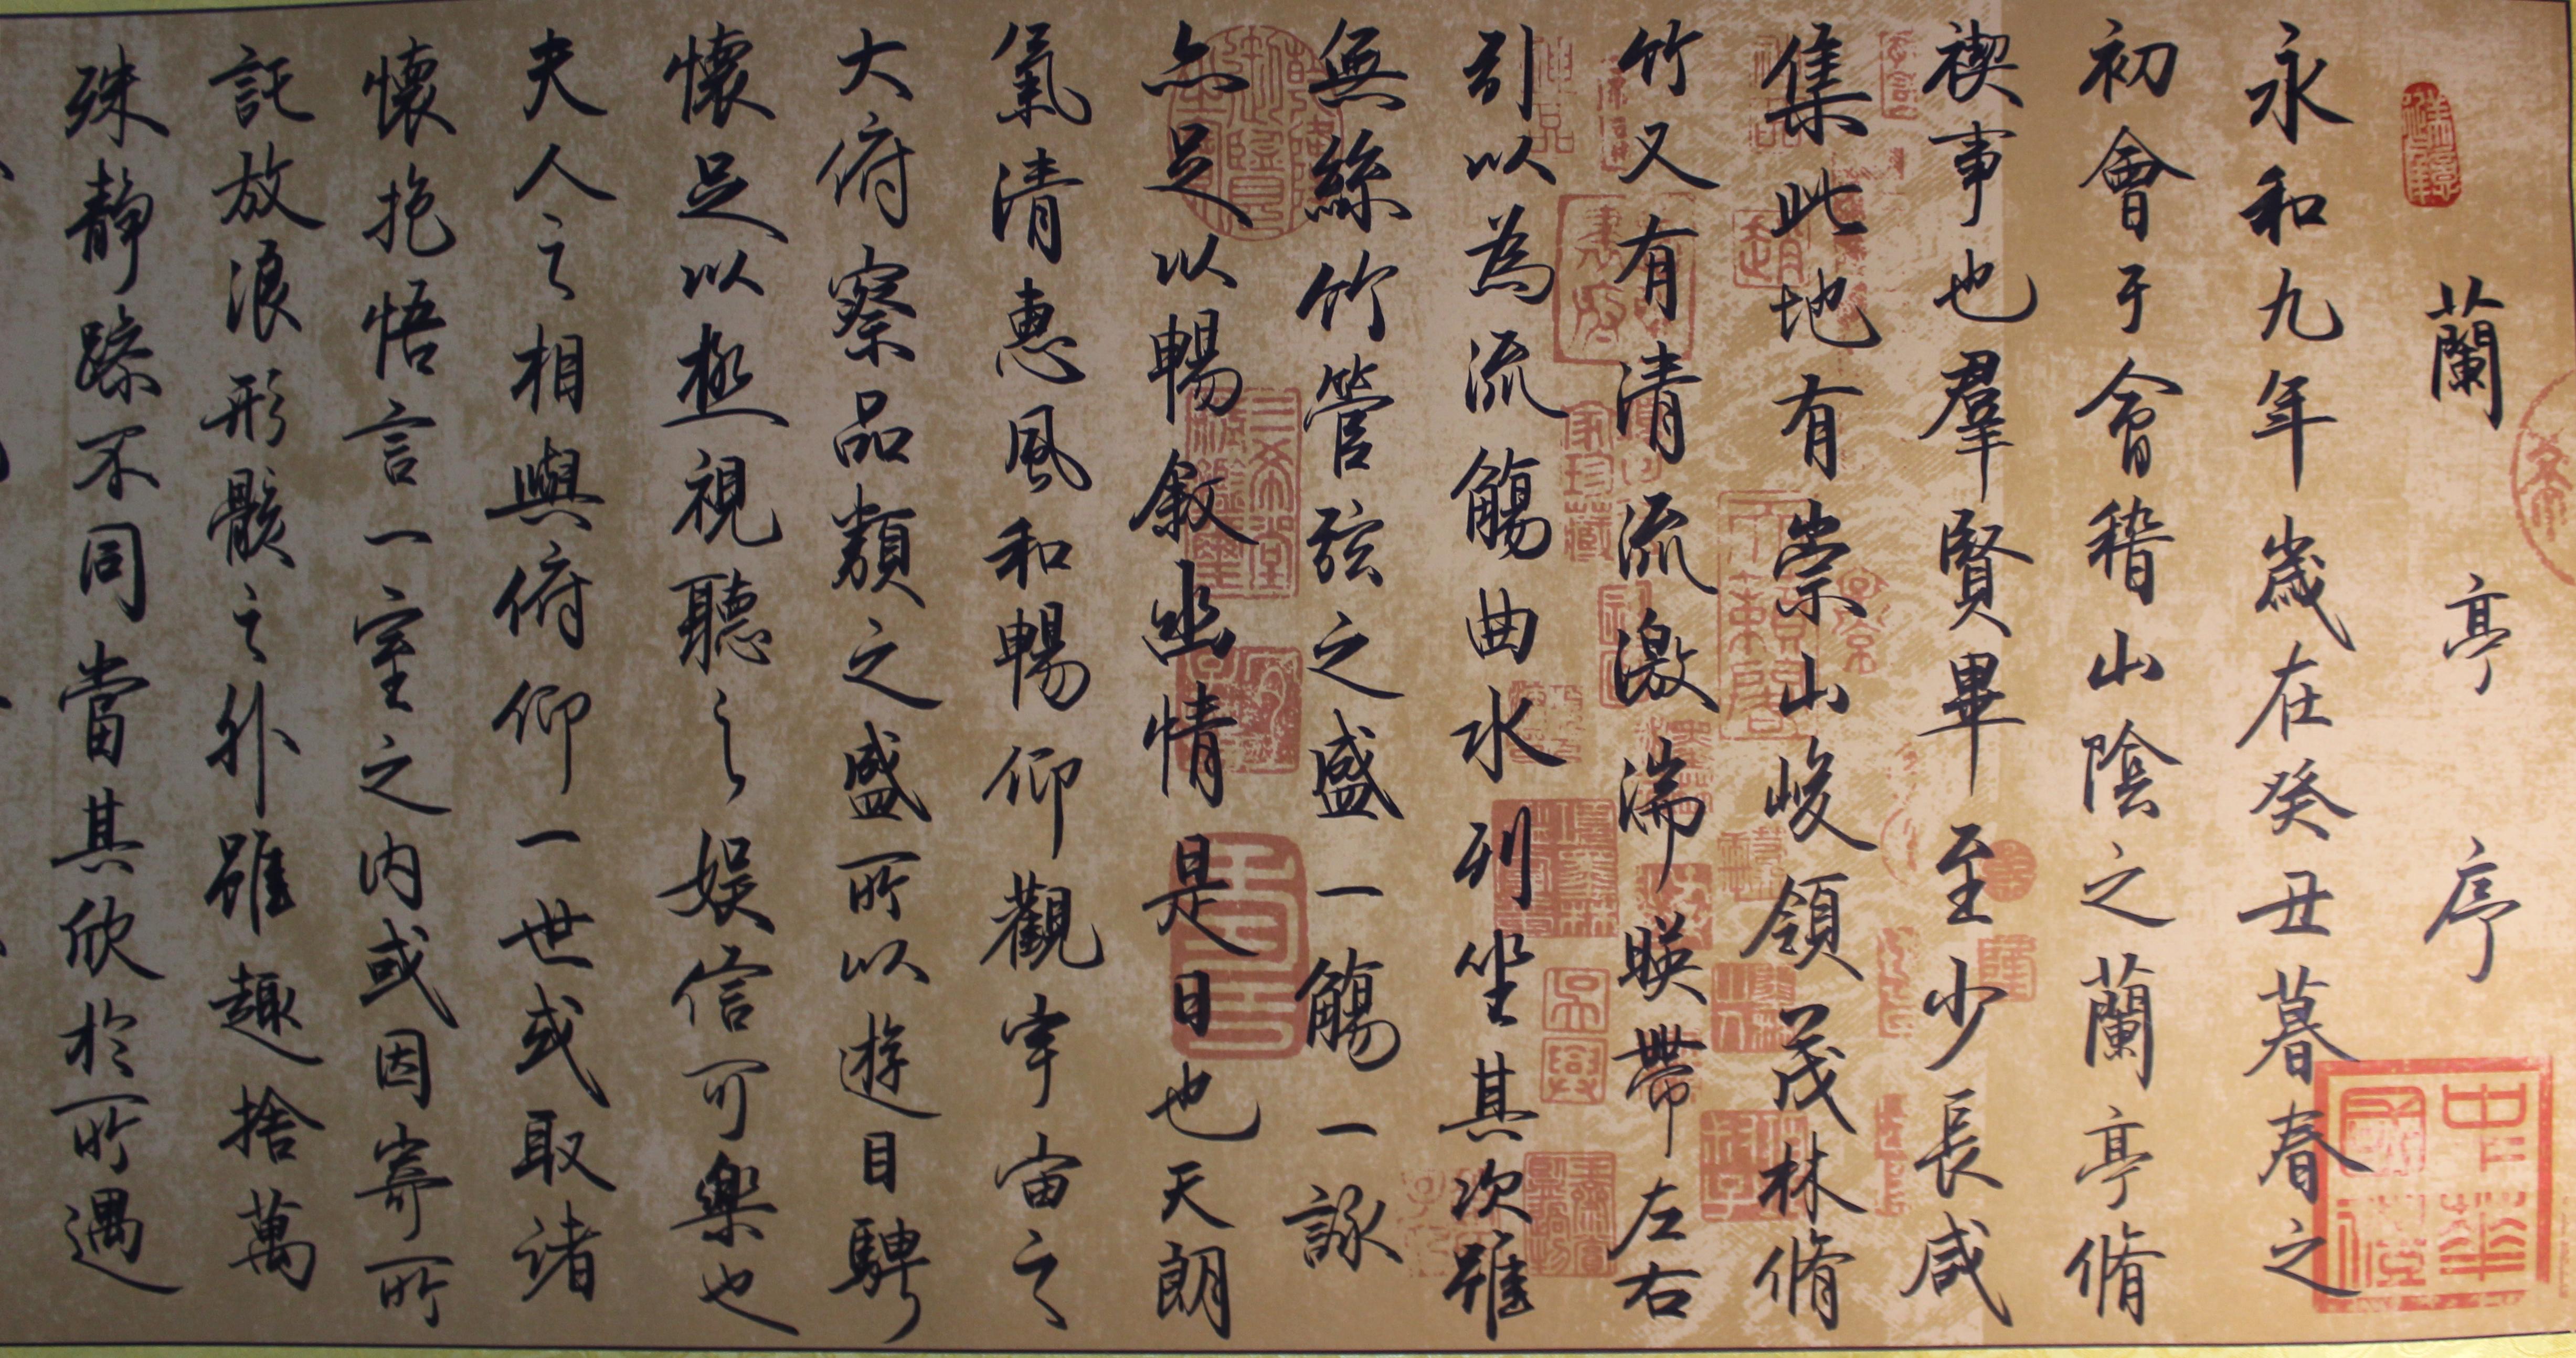 蘭亭序
永和九年歲在癸丑暮春之
初會于會稽山陰之蘭亭脩
禊事也羣賢畢至少長咸
集此地有崇山峻領茂林脩
竹又有清流激湍暎帶左右
引以為流觴曲水列坐其次雖
無絲竹管弦之盛一觴一詠
亦足以暢敘幽情是日也天朗
氣清惠風和暢仰觀宇宙之
大俯察品類之盛所以遊目騁
懷足以極視聽之娛信可樂也
夫人之相與俯仰一世或取諸
懷抱悟言一室之內或因寄所
託放浪形骸之外雖趣捨萬
殊靜躁不同當其欣於所遇